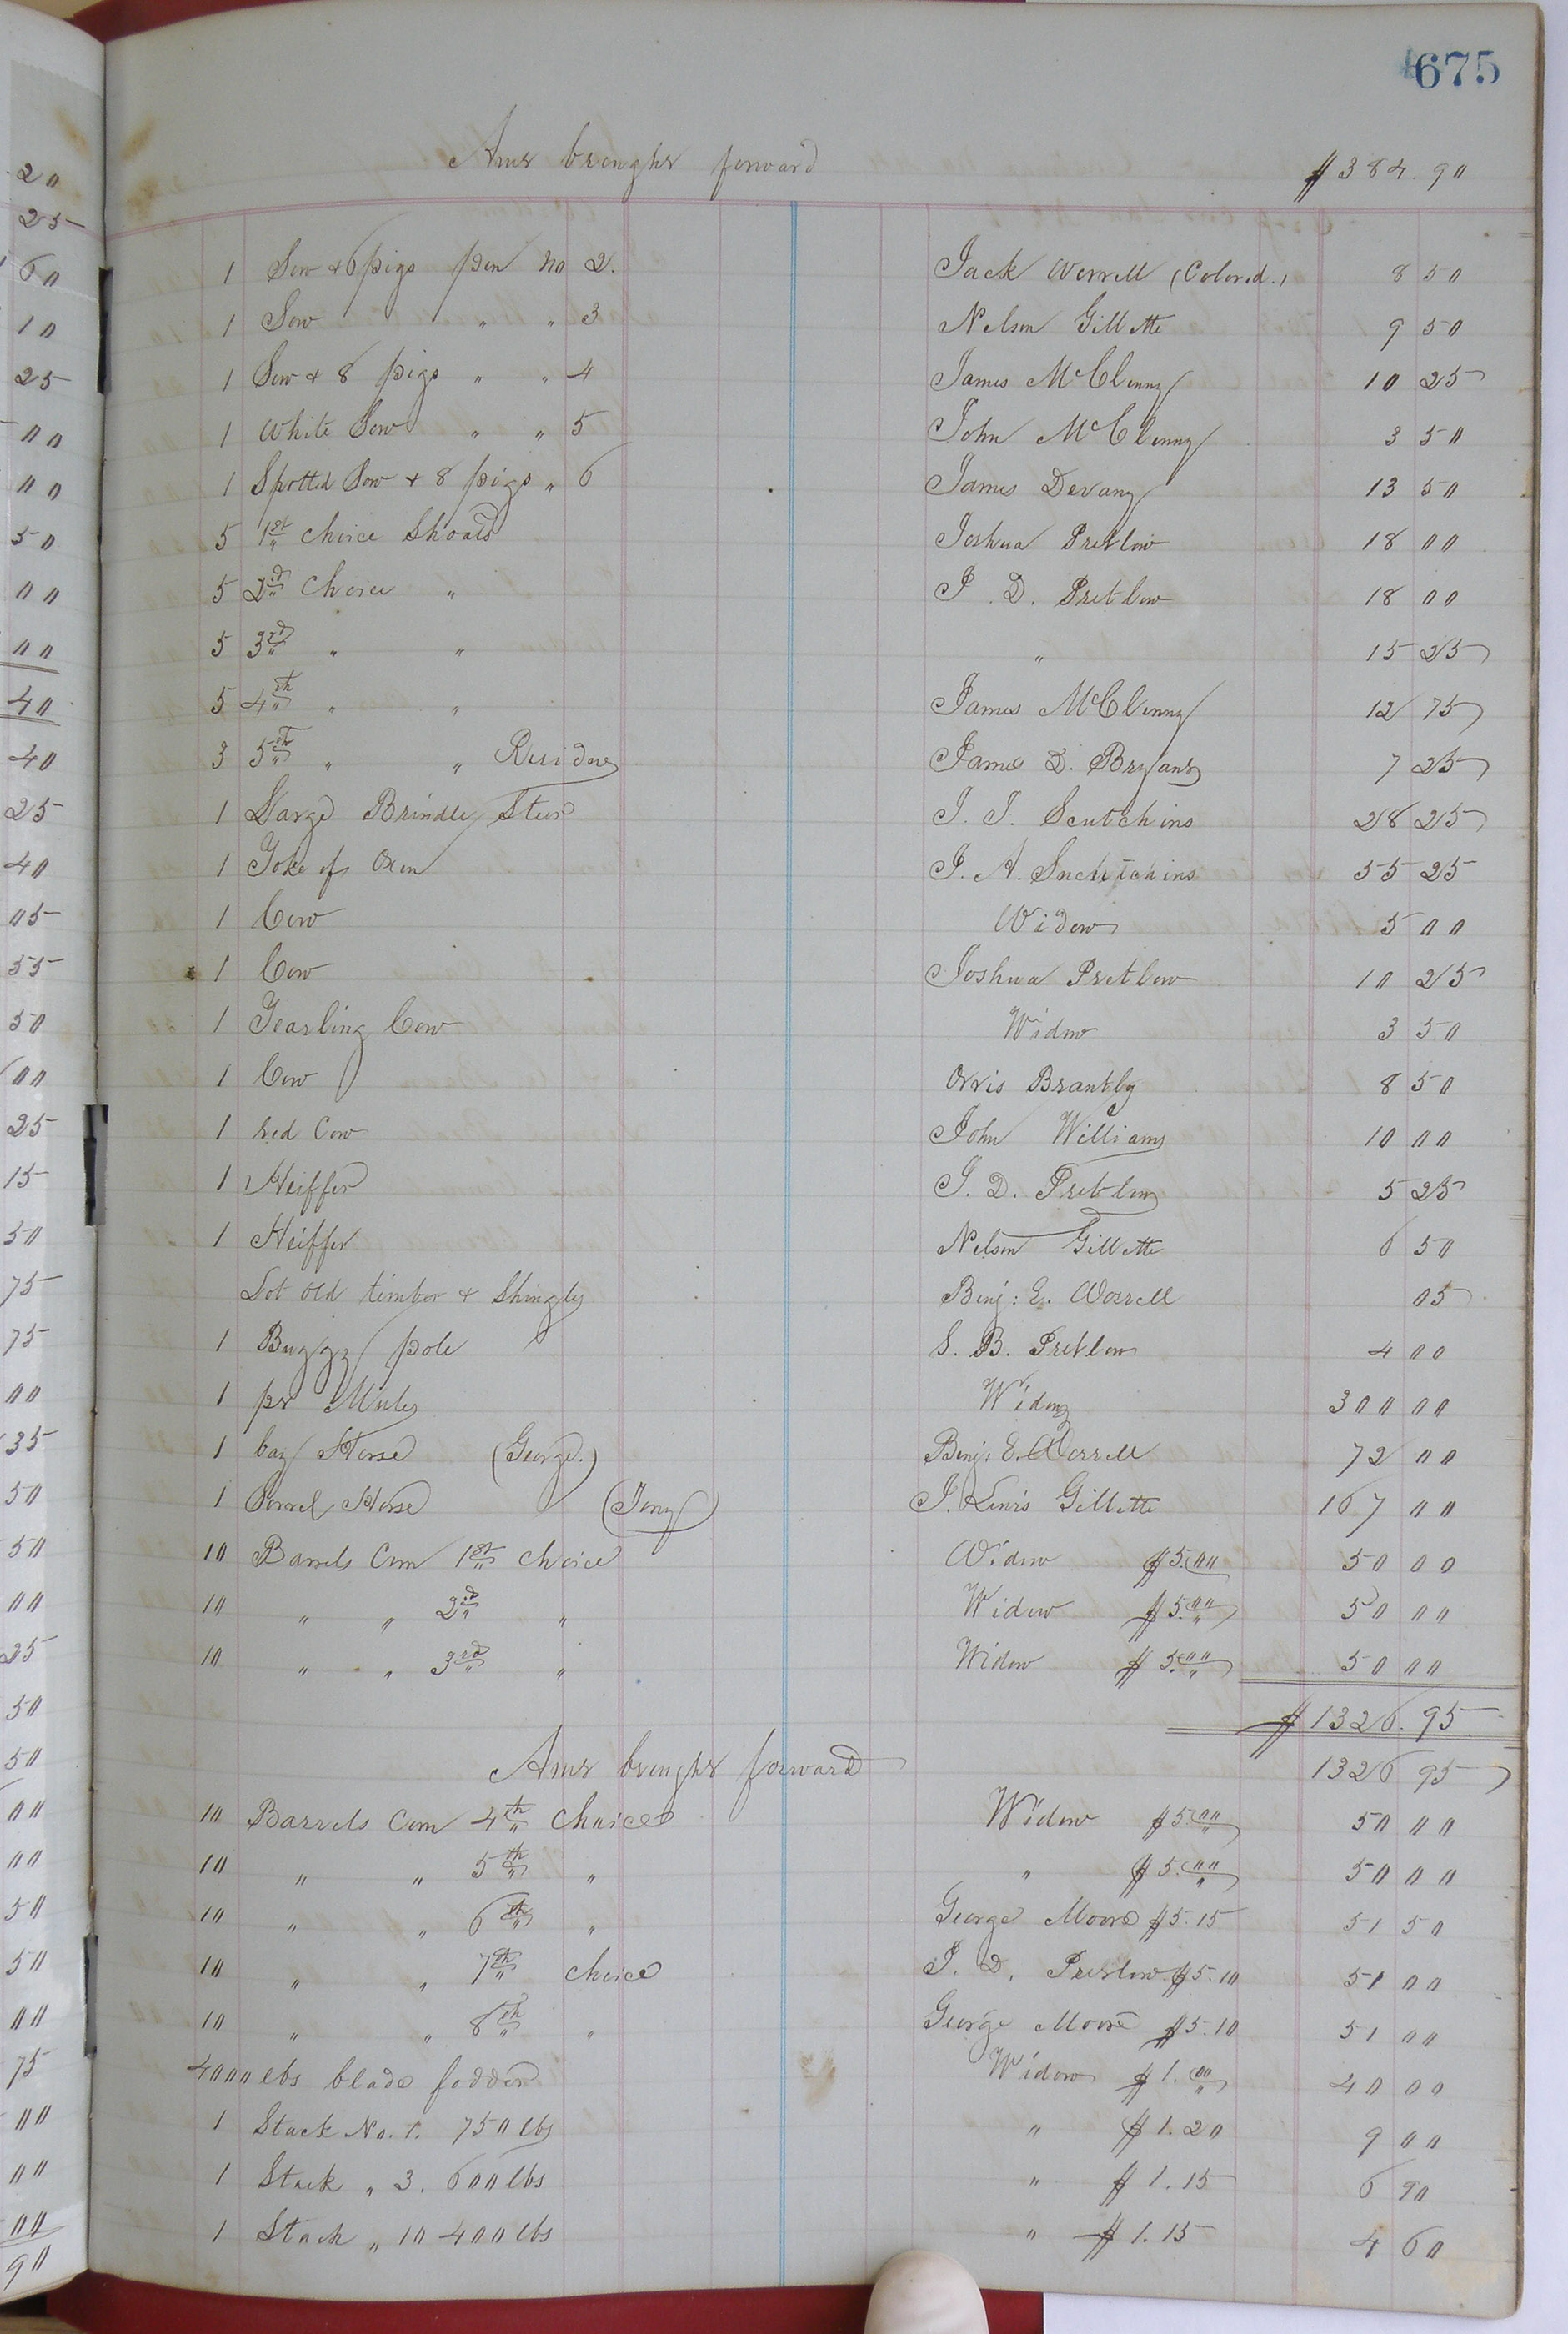 675
Amt brought forward $384.90
1 Sow & 6 pigs pen No 2. Jack Worrell (Colored.) 8 50
1 Sow " " 3 Nelson Gillette 9 50
1 Sow & 8 pigs " " 4 James McClenny 10 25
1 White Sow " " 5 John McClenny 3 50
1 Spotted Sow & 8 pigs " 6 James Devany 13 50
5 1st choice Shoats Joshua Pretlow 18 00
5 2d Choice " J. D. Pretlow 18 00
5 3rd " " " 15 25
5 4th " " James McClenny 12 75
3 5th " " Residue James D. Bryant 7 25
1 Large Brindle Steer J. J. Scutchins 28 25
1 Yoke of Oxen J. A. Scutchins 55 25
1 Cow Widow 5 00
1 Cow Joshua Pretlow 10 25
1 Yearling Cow Widow 3 50
1 Cow Orris Brantley 8 50
1 red Cow John Williams 10 00
1 Heiffer J. D. Pretlow 5 25
1 Heiffer Nelson Gillette 6 50
Lot old timber & Shingles Benj: E. Worrell 05
1 Buggy pole S. B. Pretlow 4 00
1 pr Mules Widow 300 00
1 bay Horse (George.) Benj: E. Worrell 72 00
1 Sorrel Horse (Tony) J. Lewis Gillette 167 00
10 Barrels Corn 1st choice Widow $5.00 50 00
10 " " 2d " Widow $5.00 50 00
10 " " 3rd " Widow $5.00 50 00
$1326.95
Amt brought forward 1326 95
10 Barrels Corn 4th Choice Widow $5.00 50 00
10 " " 5th " " $5.00 50 00
10 " " 6th " George Moore $5.15 51 50
10 " " 7th choice J. D. Pretlow $5.10 51 00
10 " " 8th " George Moore $5.10 51 00
4000 lbs blade fodder Widow $1.00 40 00
1 Stack No. 1. 750 lbs " $1.20 9 00
1 Stack " 3. 600 lbs " $1.15 6 90
1 Stack " 10 400 lbs " $1.15 4 60